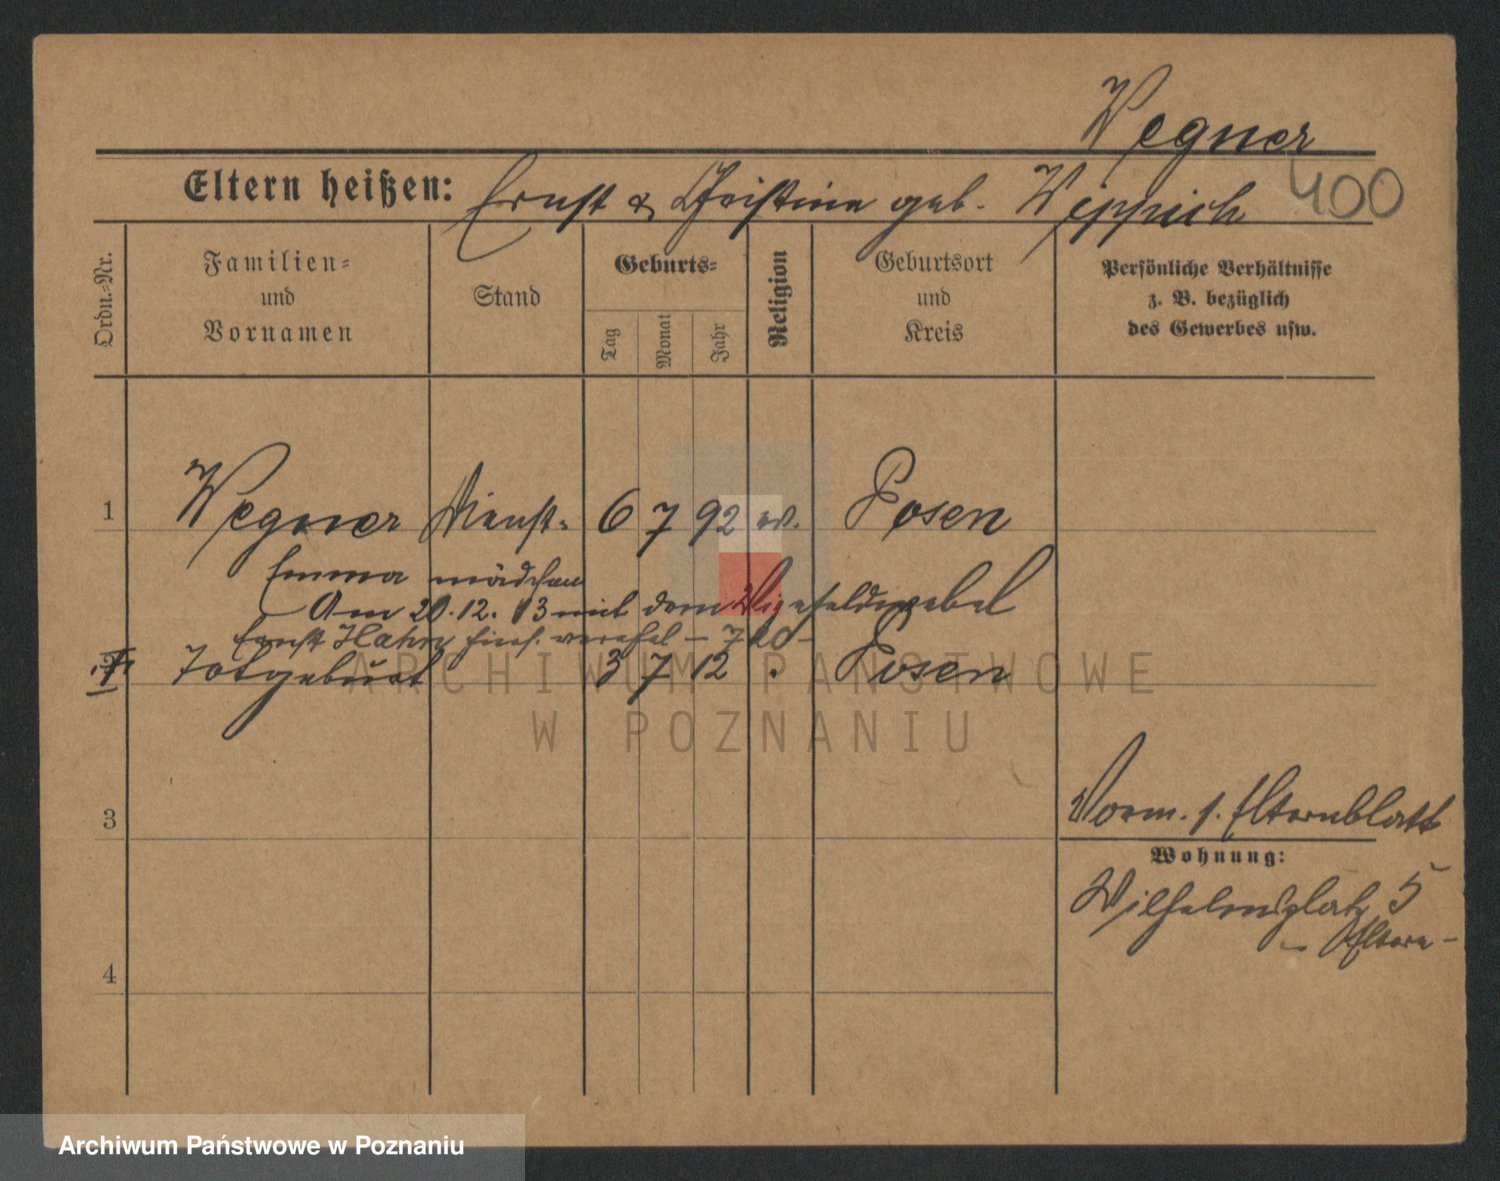 Wegner
400
Eltern heißen: Ernst & Christine geb. Weppich
Ordn.-Nr.
Familien-
und
Vornamen
Stand
Geburts-
Tag
Monat
Jahr
Religion
Geburtsort
und
Kreis
Persönliche Verhältnisse
z. B. bezüglich
des Gewerbes usw.
1 Wegner Dienst- 6 7 92 ev. Posen
Emma mädchen
Am 20.12.13 mit dem Vizefeldwebel
Ernst Hahn hies. verehel.
Totgeburt 3 7 12 Posen
3
Vorm. s. Elternblatt
Wohnung:
Wilhelmsplatz 5
- Eltern -
4
ARCHIWUM PAŃSTWOWE
W POZNANIU
Archiwum Państwowe w Poznaniu